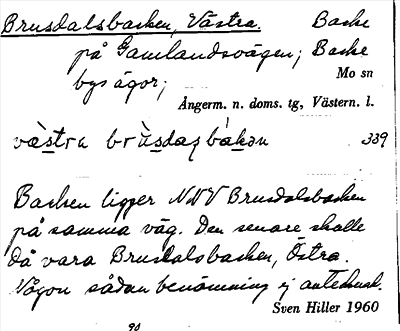 Brusdalsbacken, Västra. Backe
på Gamlandsvägen; Backe
bys ägor;
Mo sn
Ångerm. n. doms. tg, Västern. l.
væ̀stra brùsdaz bákən 339
Backen ligger NNV Brusdalsbacken
på samma väg. Den senare skulle
då vara Brusdalsbacken, Östra.
Någon sådan benämning ej antecknad.
Sven Hiller 1960
90